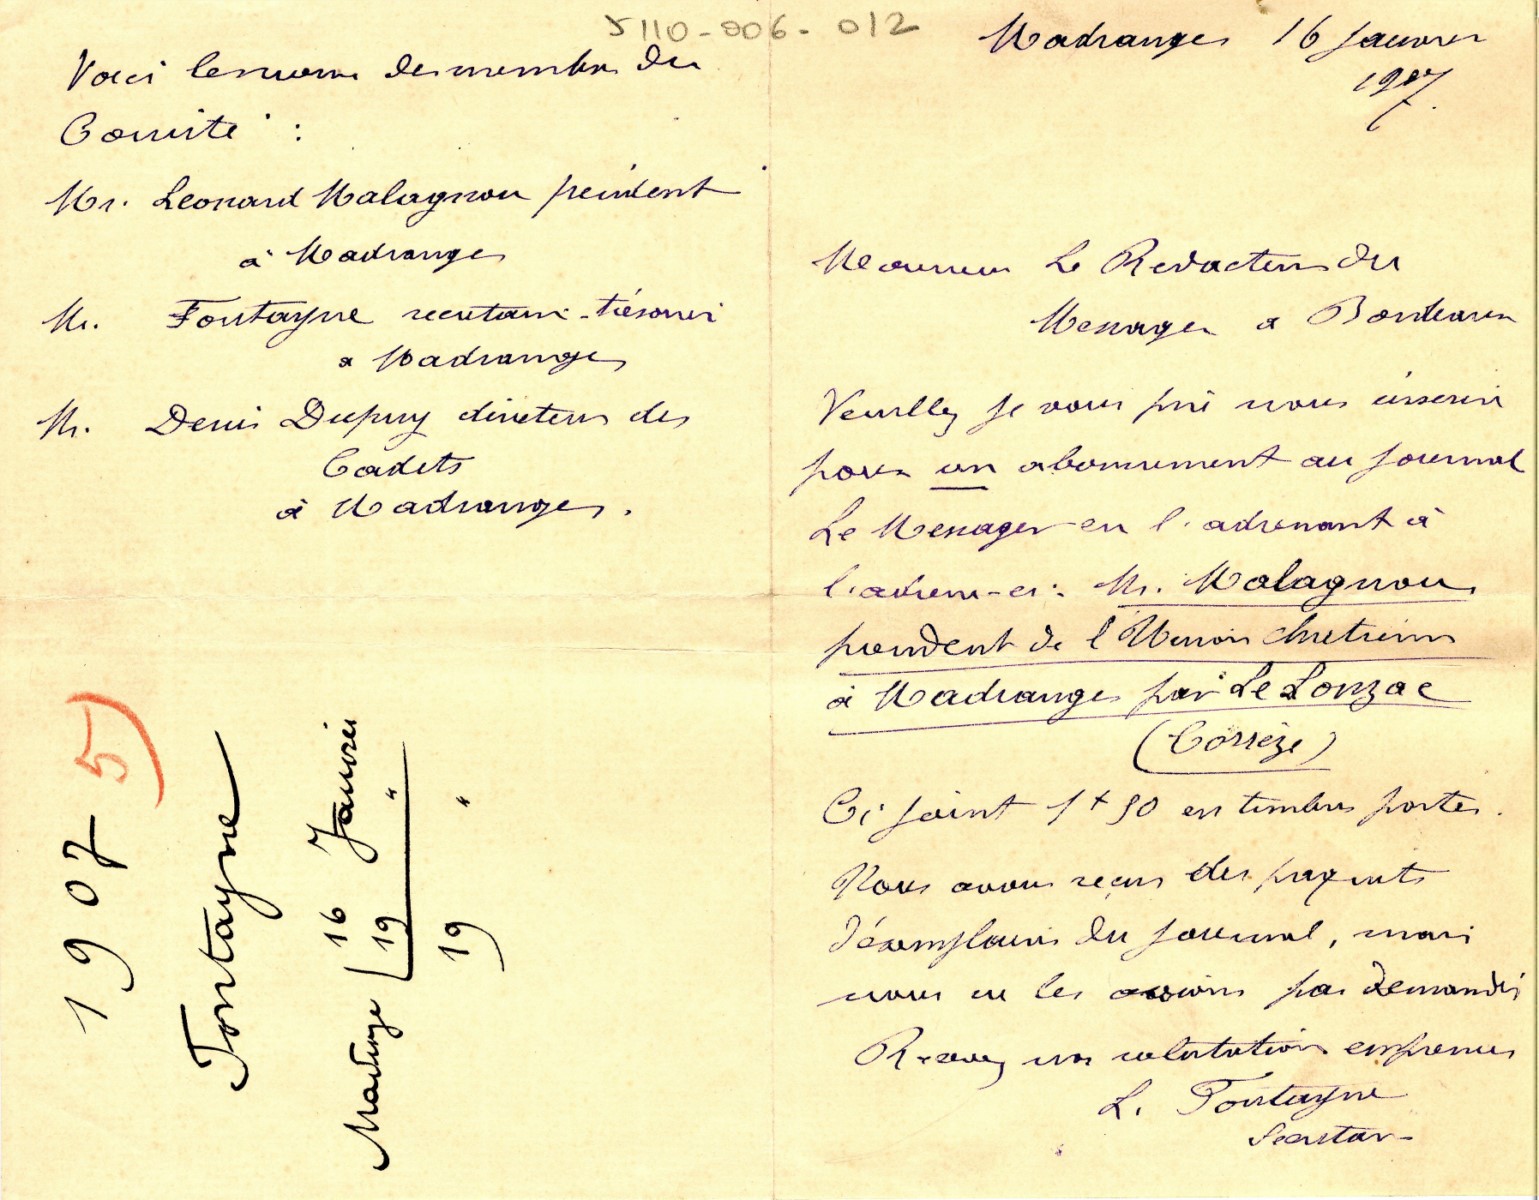 5110-006-012
Madranges 16 Janvier
1907.
Monsieur Le Redacteur du
Messager a Bordeaux
Veuillez je vous prie nous inserire
pour un abonnement au journal
Le Messager en l'adressant à
l'adresse-ci: Mr. Malagnou
president de l'Union chretienne
à Madranges par Le Lonzac
(Corrèze)
Ci joint 1f 50 en timbres postes.
Nous avons reçus des paquets
d'exemplaires du journal, mais
nous ne les avions pas demandés
Recevez nos salutations empressees
L. Fontayne
Secretaire
Voici les noms des membres du
Comité :
Mr. Leonard Malagnou président
à Madranges
Mr. Fontayne secretaire-trésorier
a Madranges
Mr. Denis Dupuy directeur des
Cadets
à Madranges.
1907 5)
Fontayne
Madrange 16 Janvier
19 "
19 "